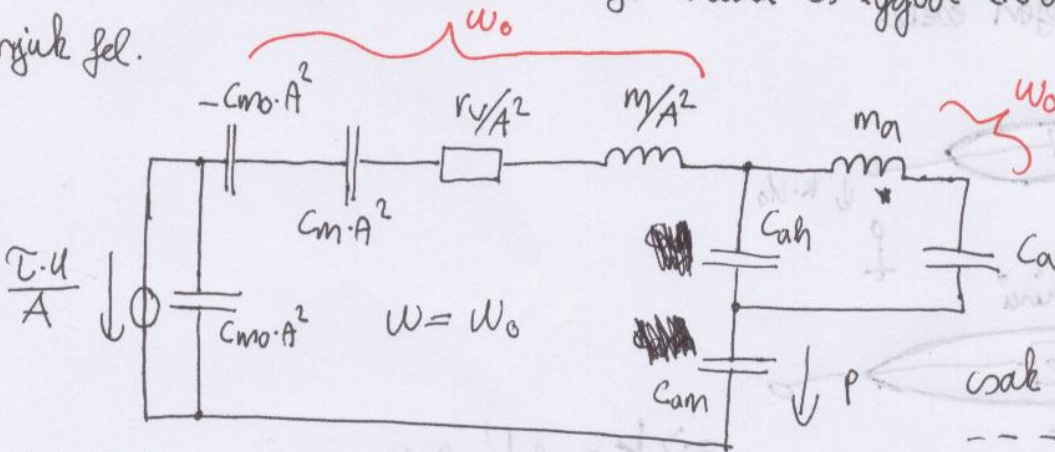 és
rjuk fel.
ω₀
-Cmo·A²
rv/A²
m/A²
ma
ω₀
Cm·A²
Cah
Ca
τ·U/A
Cmo·A²
ω = ω₀
Cam
p
csak